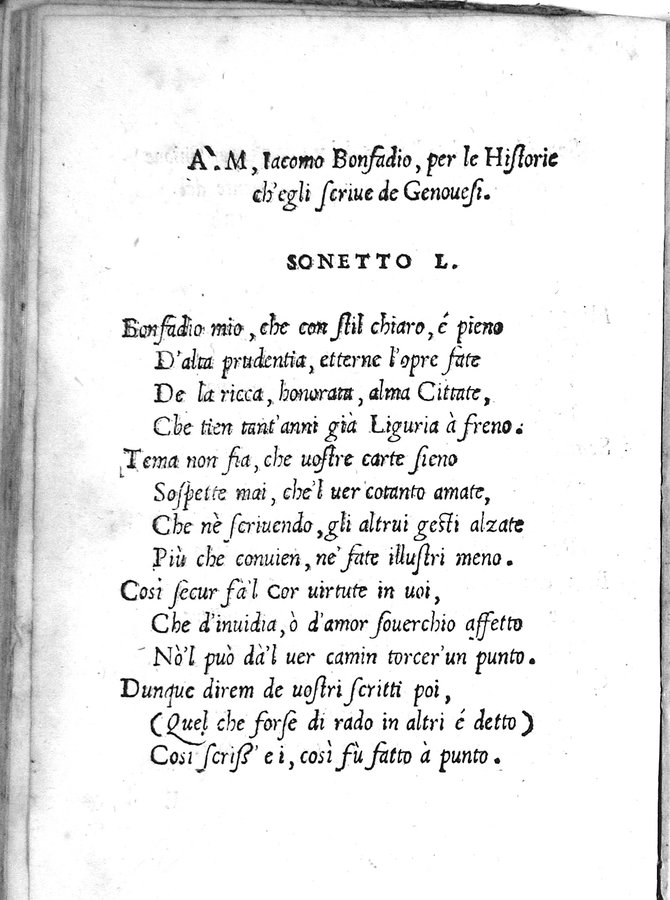 A'. M, Iacomo Bonfadio, per le Hiſtorie
ch'egli ſcriue de Genoueſi.
SONETTO L.
Bonfadio mio, che con ſtil chiaro, é pieno
D'alta prudentia, etterne l'opre fate
De la ricca, honorata, alma Cittate,
Che tien tant'anni già Liguria à freno.
Tema non fia, che uoſtre carte ſieno
Soſpette mai, che'l uer cotanto amate,
Che nè ſcriuendo, gli altrui geſti alzate
Più che conuien, ne' fate illuſtri meno.
Così ſecur fà'l Cor uirtute in uoi,
Che d'inuidia, ò d'amor ſouerchio affetto
Nò'l può dà'l uer camin torcer'un punto.
Dunque direm de uoſtri ſcritti poi,
(Quel che forſe di rado in altri é detto)
Così ſcriſſ' ei, così fù fatto à punto.